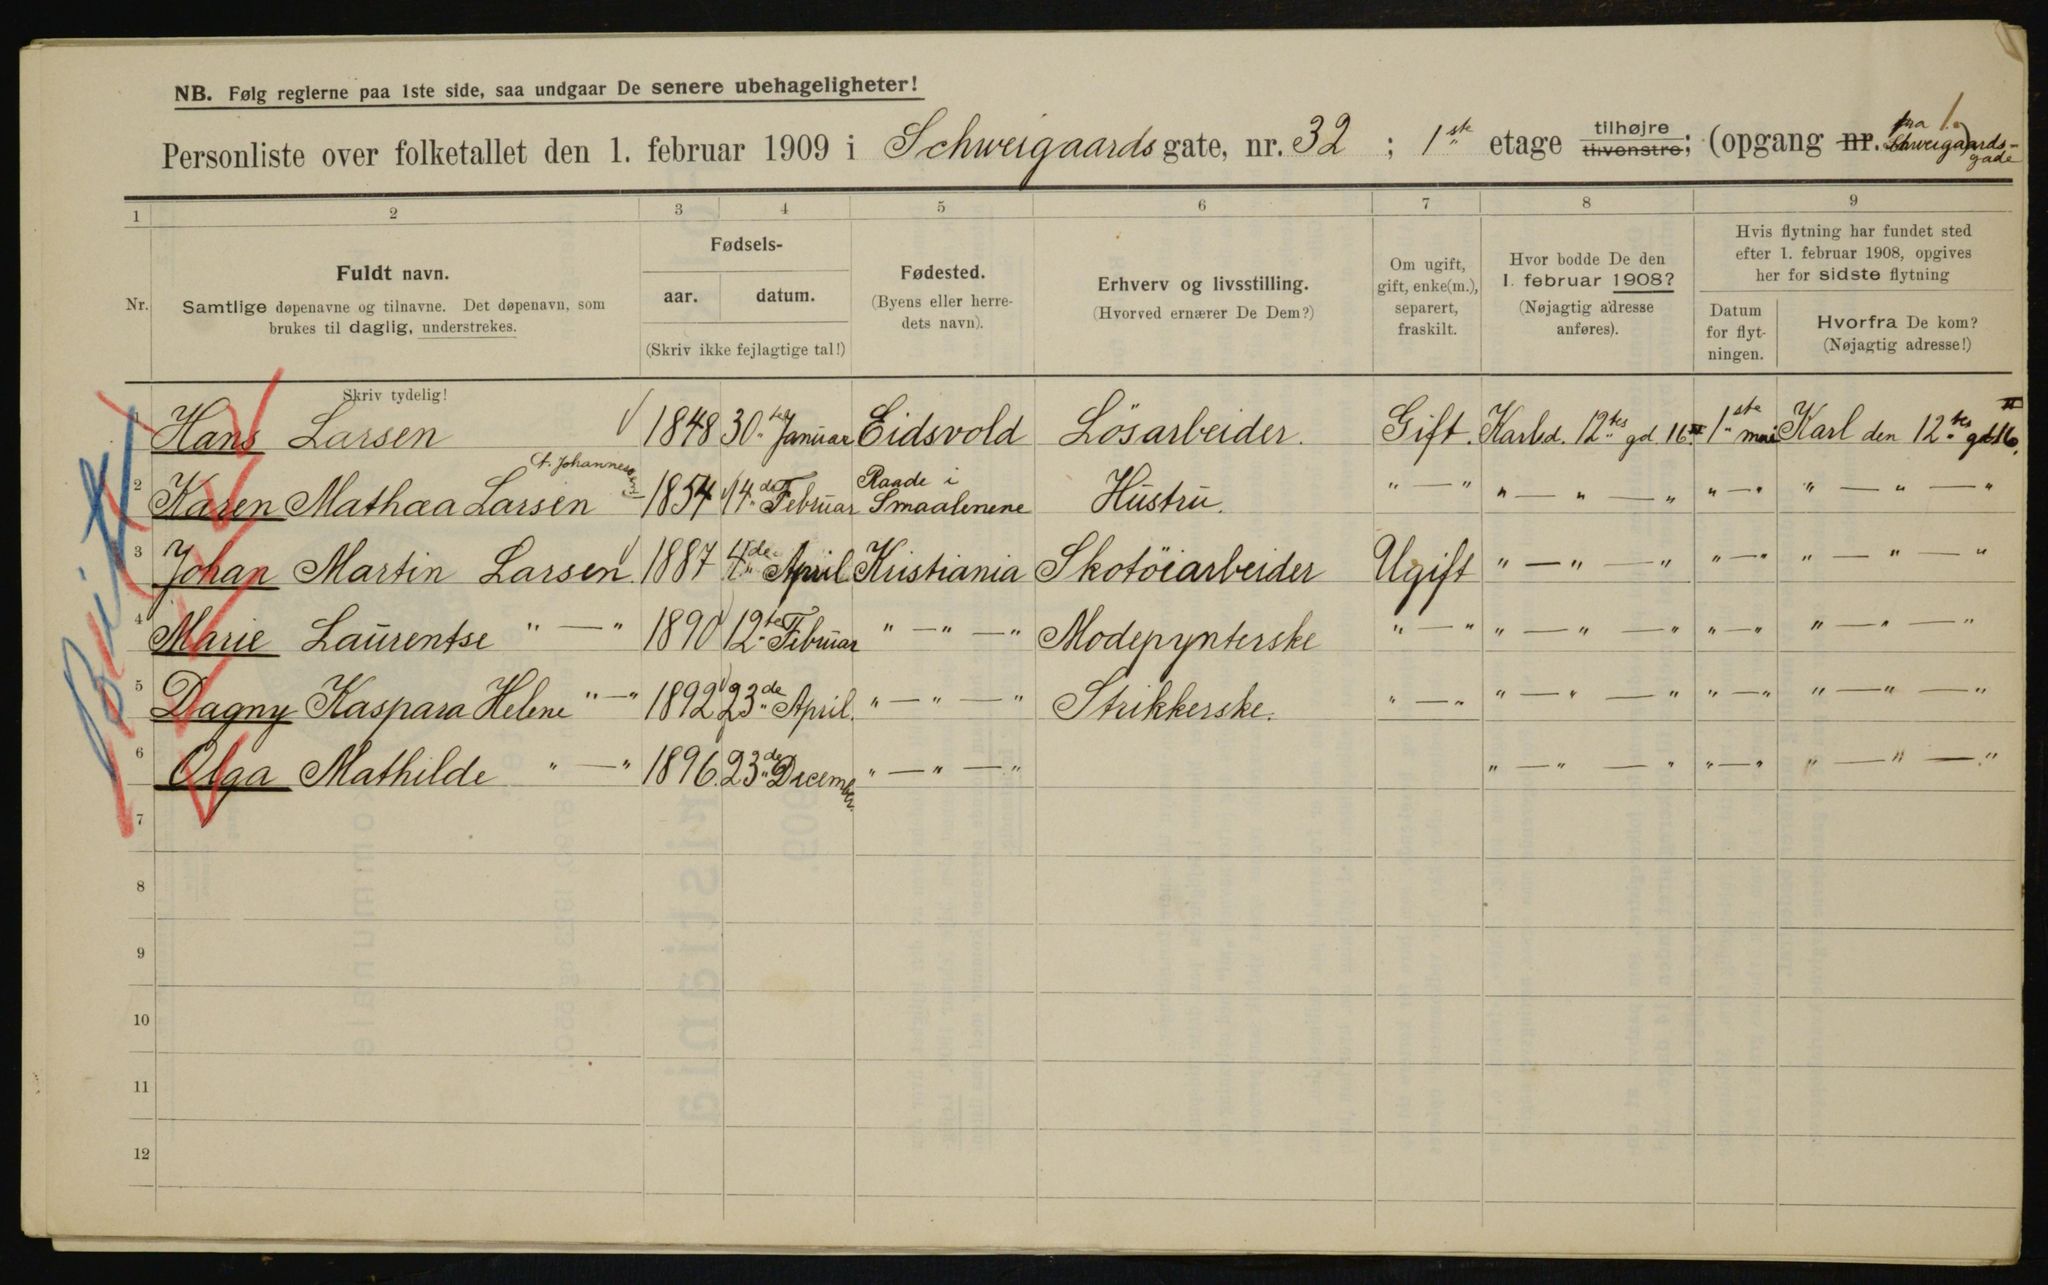 NB. Følg reglerne paa 1ste side, saa undgaar De senere ubehageligheter!
Personliste over folketallet den 1. februar 1909 i Schweigaards gate, nr. 32 ; 1ste etage tilhøjre tilvenstre; (opgang nr. fra Schweigaards-gade)
1 2 3 4 5 6 7 8 9
Nr.
Fuldt navn.
Samtlige døpenavne og tilnavne. Det døpenavn, som
brukes til daglig, understrekes.
Skriv tydelig!
Fødsels-
aar. datum.
(Skriv ikke fejlagtige tal!)
Fødested.
(Byens eller herre-
dets navn).
Erhverv og livsstilling.
(Hvorved ernærer De Dem?)
Om ugift,
gift, enke(m.),
separert,
fraskilt.
Hvor bodde De den
1. februar 1908?
(Nøjagtig adresse
anføres).
Hvis flytning har fundet sted
efter 1. februar 1908, opgives
her for sidste flytning
Datum
for flyt-
ningen.
Hvorfra De kom?
(Nøjagtig adresse!)
1 Hans Larsen 1848 30te Januar Eidsvold Lösarbeider. Gift. Karl d. 12tes gd. 16 II 1ste mai Karl den 12tes gd. 16 II
2 Karen Mathæa Larsen f. Johannesen 1854 14de Februar Raade i Smaalenene Hustru. " — " " — " — " " — " " — " — "
3 Johan Martin Larsen 1887 4de April Kristiania Skotöiarbeider Ugift " — " — " " — " " — " — "
4 Marie Laurentse " — " 1890 12te Februar " — " — " Modepynterske " — " " — " — " " — " " — " — "
5 Dagny Kaspara Helene " — " 1892 23de April. " — " — " Strikkerske. " — " " — " — " " — " " — " — "
6 Olga Mathilde " — " 1896. 23de December. " — " — " " — " — " " — " " — " — "
7
8
9
10
11
12